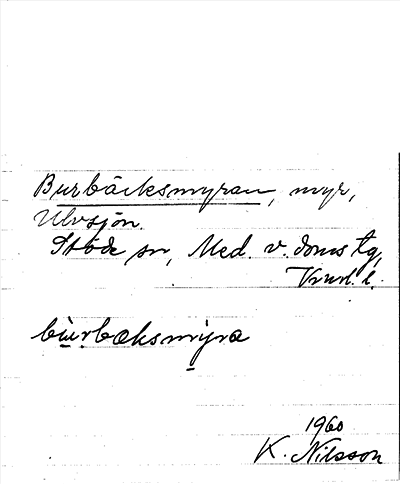 Burbäcksmyran, myr,
Ulvsjön.
Stöde sn, Med. v. doms tg,
Vnrl. l.
bùrbaksmỳra
1960
K. Nilsson